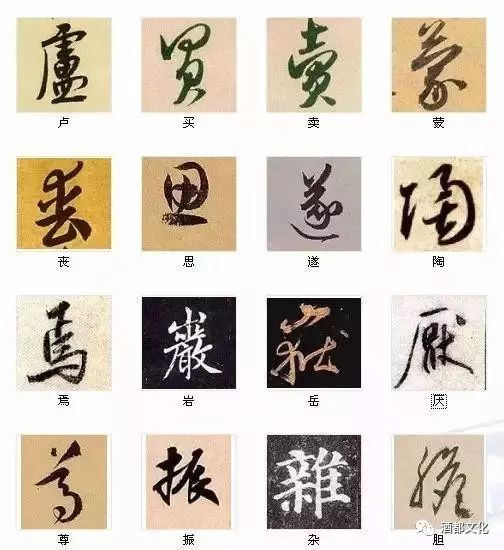 盧 買 賣 蒙
卢 买 卖 蒙
丧 思 遂 陶
丧 思 遂 陶
焉 巖 嶽 厭
焉 岩 岳 厌
尊 振 雜 膽
尊 振 杂 胆
酒都文化